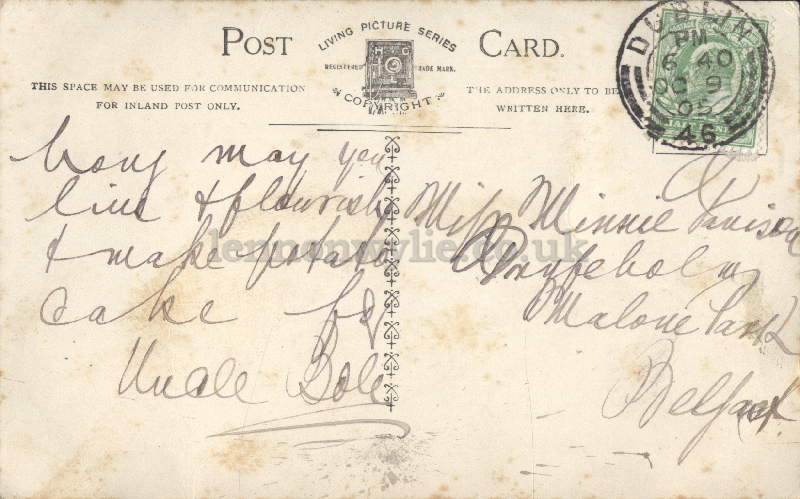 POST CARD.
LIVING PICTURE SERIES
REGISTERED TRADE MARK.
COPYRIGHT
THIS SPACE MAY BE USED FOR COMMUNICATION
FOR INLAND POST ONLY.
THE ADDRESS ONLY TO BE
WRITTEN HERE.
DUBLIN
PM
6 40
OC 9
05
46
Long may you
live & flourish
& make potato
cake for
Uncle Bole
Miss Minnie
Malone Park
Belfast
lennonwylie.co.uk